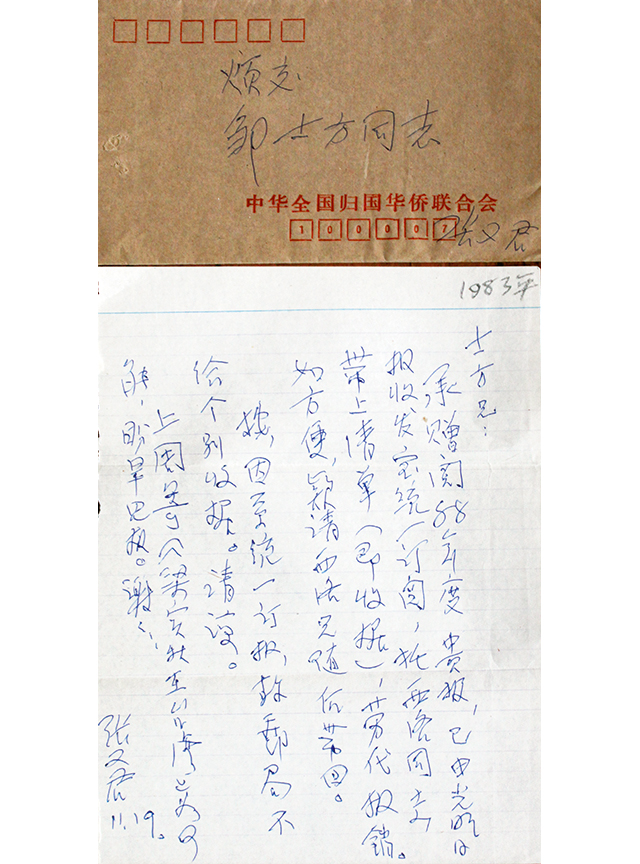 烦交
邹士方同志
中华全国归国华侨联合会
100007
张又君
1983年
士方兄：
承赠阅88年度贵报，已由光明日
报收发室统一订阅，托西洛同志
带上清单（即收据），劳代报销。
如方便，请西洛兄随后带回。
因系统一订报，邮局不
给个别收据。请谅。
上周寄《梁实秋在台湾
能，盼早见报。谢谢！
张又君
11.19。